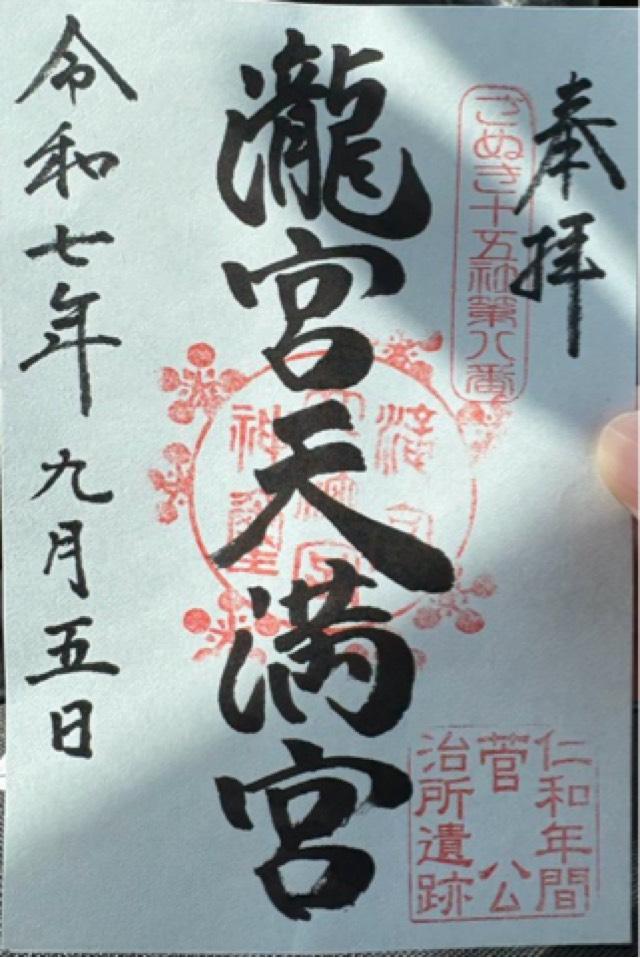 奉拝
さぬき十五社第八番
瀧宮天満宮
仁和年間
菅公
治所遺跡
令和七年九月五日